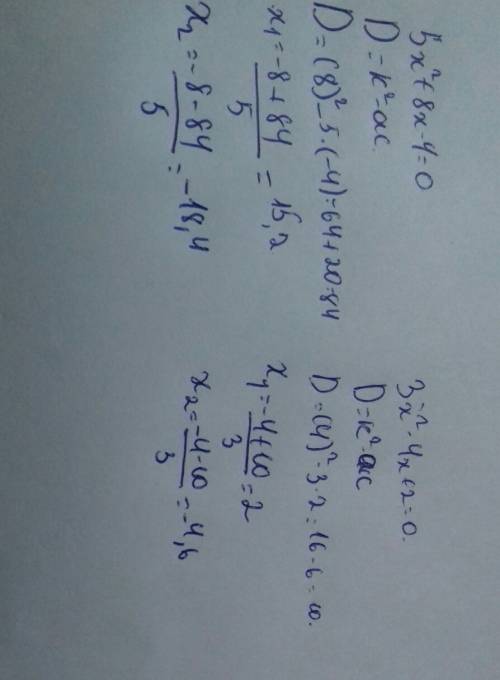 5x²+8x-4=0
D=k²-ac.
D=(8)²-5·(-4)=64+20=84
x₁=-8+84/5=15,2
x₂=-8-84/5=-18,4
3x²-4x+2=0.
D=k²-ac
D=(4)²-3·2=16-6=10.
x₁=-4+10/3=2
x₂=-4-10/3=-4,6